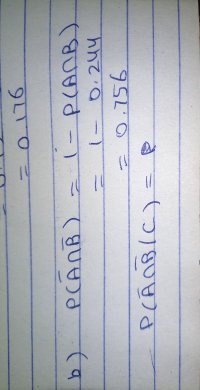 = 0.176
b) P(Ā∩B̄) = 1 - P(A∩B)
= 1 - 0.244
= 0.756
P(Ā∩B̄/C) = P